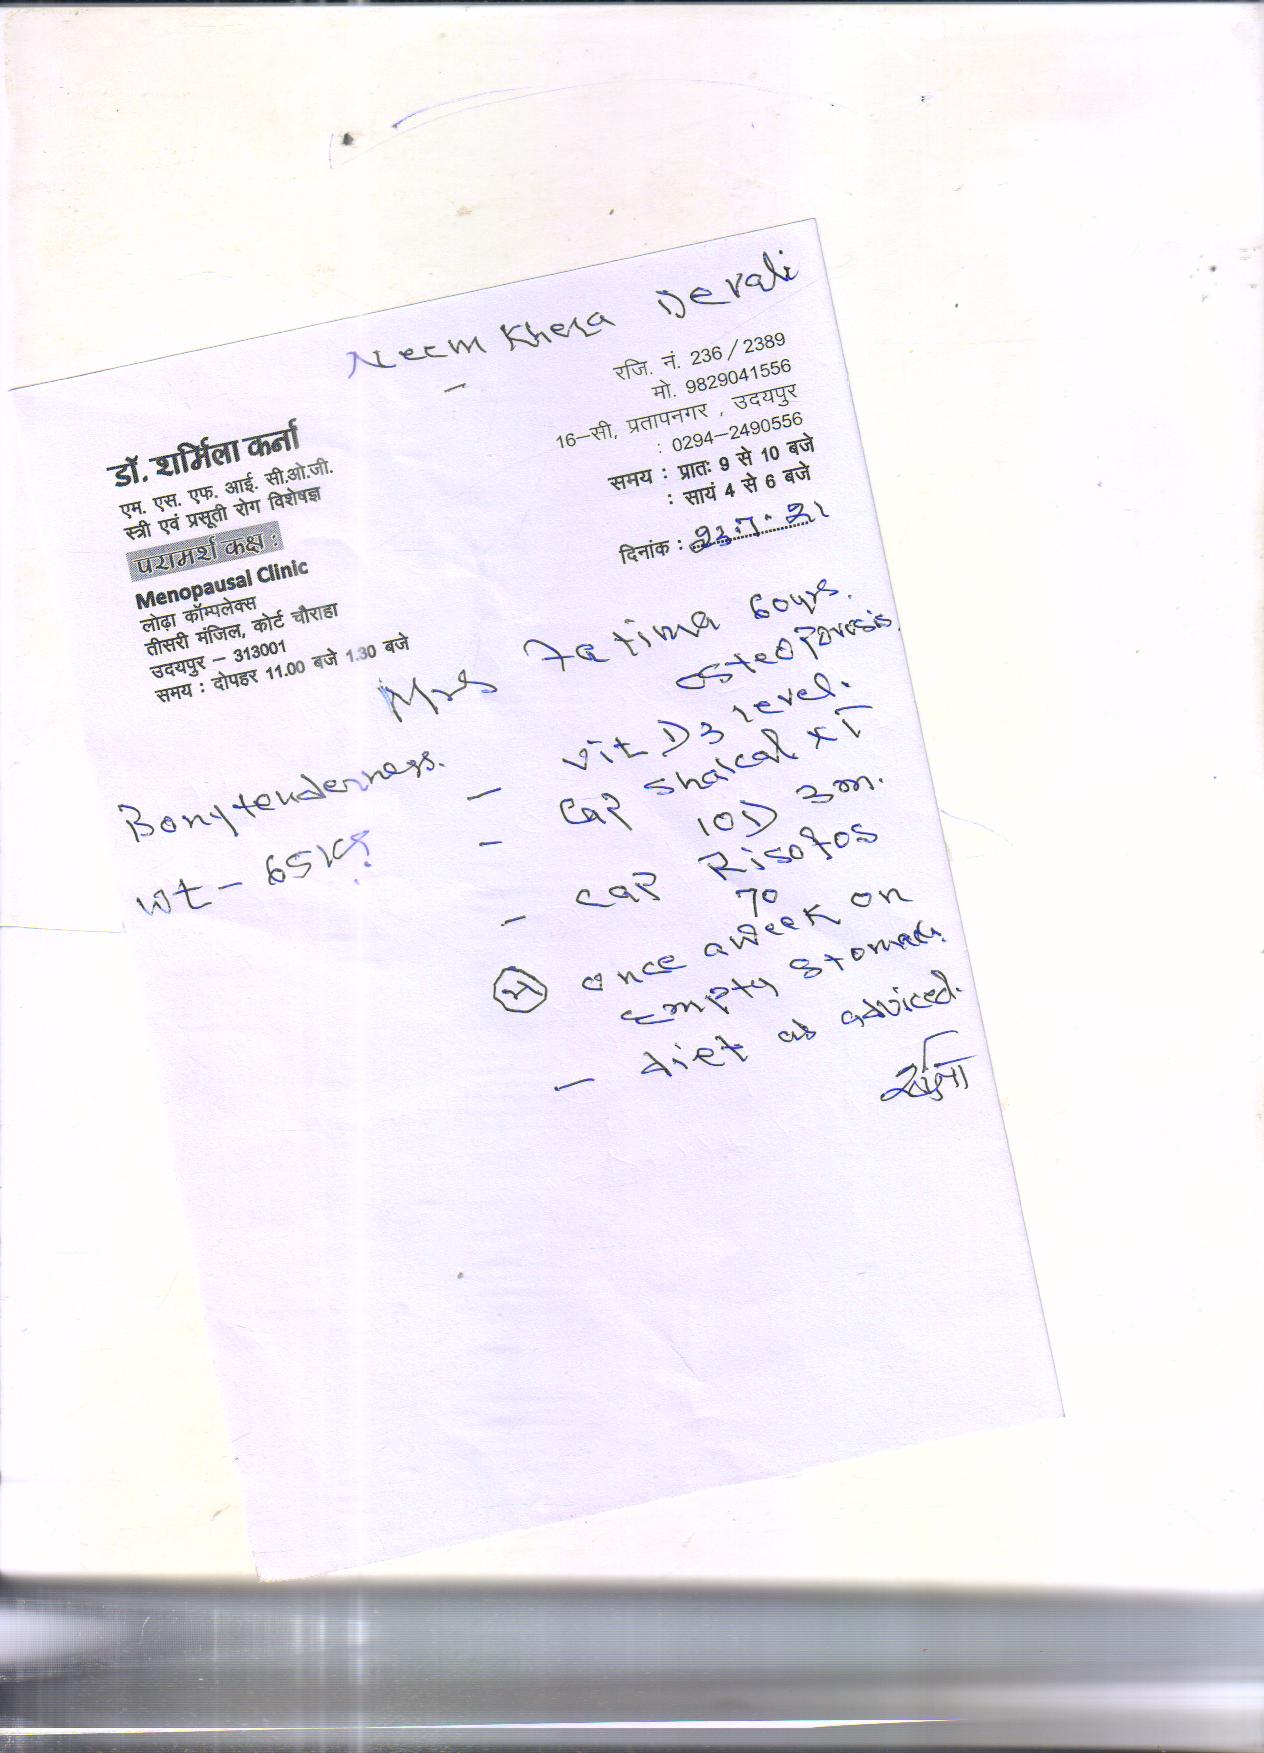 Neem Khera Devali
रजि. नं. 236 / 2389
मो. 9829041556
16–सी, प्रतापनगर , उदयपुर
: 0294–2490556
समय : प्रातः 9 से 10 बजे
: सायं 4 से 6 बजे
दिनांक : 23.7.21
डॉ. शर्मिला कर्ना
एम. एस. एफ. आई. सी.ओ.जी.
स्त्री एवं प्रसूती रोग विशेषज्ञ
परामर्श कक्ष :
Menopausal Clinic
लोढ़ा कॉम्पलेक्स
तीसरी मंजिल, कोर्ट चौराहा
उदयपुर – 313001
समय : दोपहर 11.00 बजे 1.30 बजे
Mrs Fatima 60yrs.
osteoporosis.
Bony tenderness.
wt – 65 kg
– vit D3 level.
– Cap Shalcal x I
10D 3m.
– Cap Risofos
70
once a week on
empty stomach.
– diet as adviced.